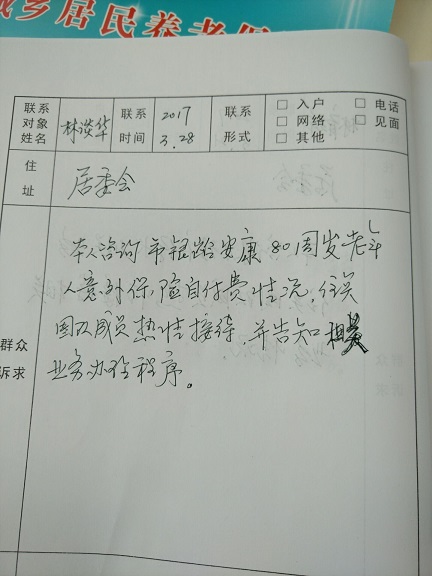 城乡居民养老保
联系 联系 2017 联系 □ 入户 □ 电话
对象 林淡华 □ 网络 □ 见面
姓名 时间 3.28 形式 □ 其他
住
址 居委会
本人咨询市银龄安康80周岁老年
人意外保险自付费情况,
团队成员热情接待,并告知相关
业务办理程序。
群众
诉求